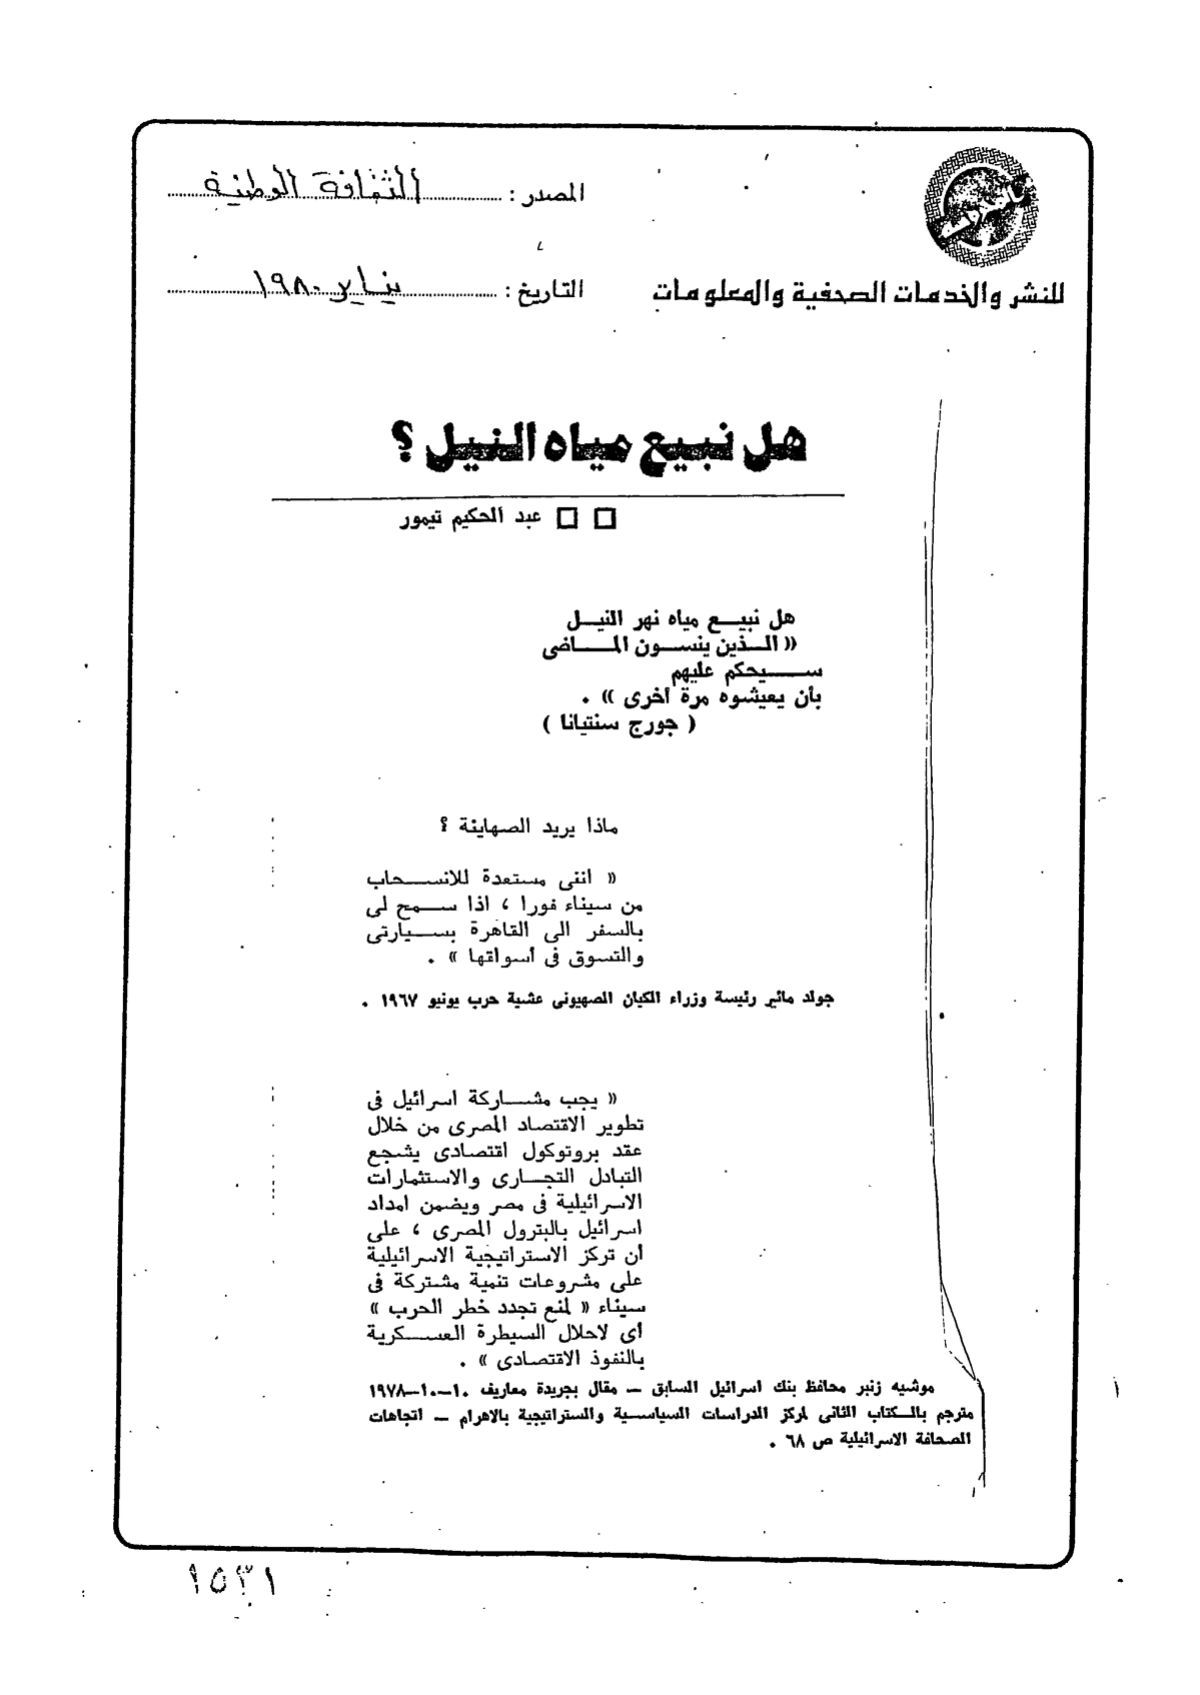 المصدر : الثقافة الوطنية
للنشر والخدمات الصحفية والمعلومات
التاريخ : يناير ١٩٨٠
هل نبيع مياه النيل ؟
□ □ عبد الحكيم تيمور
هل نبيـــع مياه نهر النيـــل
« الـــذين ينســـون المـــاضى
ســـيحكم عليهم
بأن يعيشوه مرة أخرى » .
( جورج سنتيانا )
ماذا يريد الصهاينة ؟
« اننى مستعدة للانســـحاب
من سيناء فورا ، اذا ســـمح لى
بالسفر الى القاهرة بســـيارتى
والتسوق فى أسواقها » .
جولد مائير رئيسة وزراء الكيان الصهيونى عشية حرب يونيو ١٩٦٧ .
« يجب مشـــاركة اسرائيل فى
تطوير الاقتصاد المصرى من خلال
عقد بروتوكول اقتصادى يشجع
التبادل التجـــارى والاستثمارات
الاسرائيلية فى مصر ويضمن امداد
اسرائيل بالبترول المصرى ، على
أن تركز الاستراتيجية الاسرائيلية
على مشروعات تنمية مشتركة فى
سيناء « لمنع تجدد خطر الحرب »
أى لاحلال السيطرة العســـكرية
بالنفوذ الاقتصادى » .
موشيه زنبر محافظ بنك اسرائيل السابق – مقال بجريدة معاريف ١٠–١٠–١٩٧٨
مترجم بالـــكتاب الثانى لمركز الدراسات السياسـية والستراتيجية بالاهرام – اتجاهات
الصحافة الاسرائيلية ص ٦٨ .